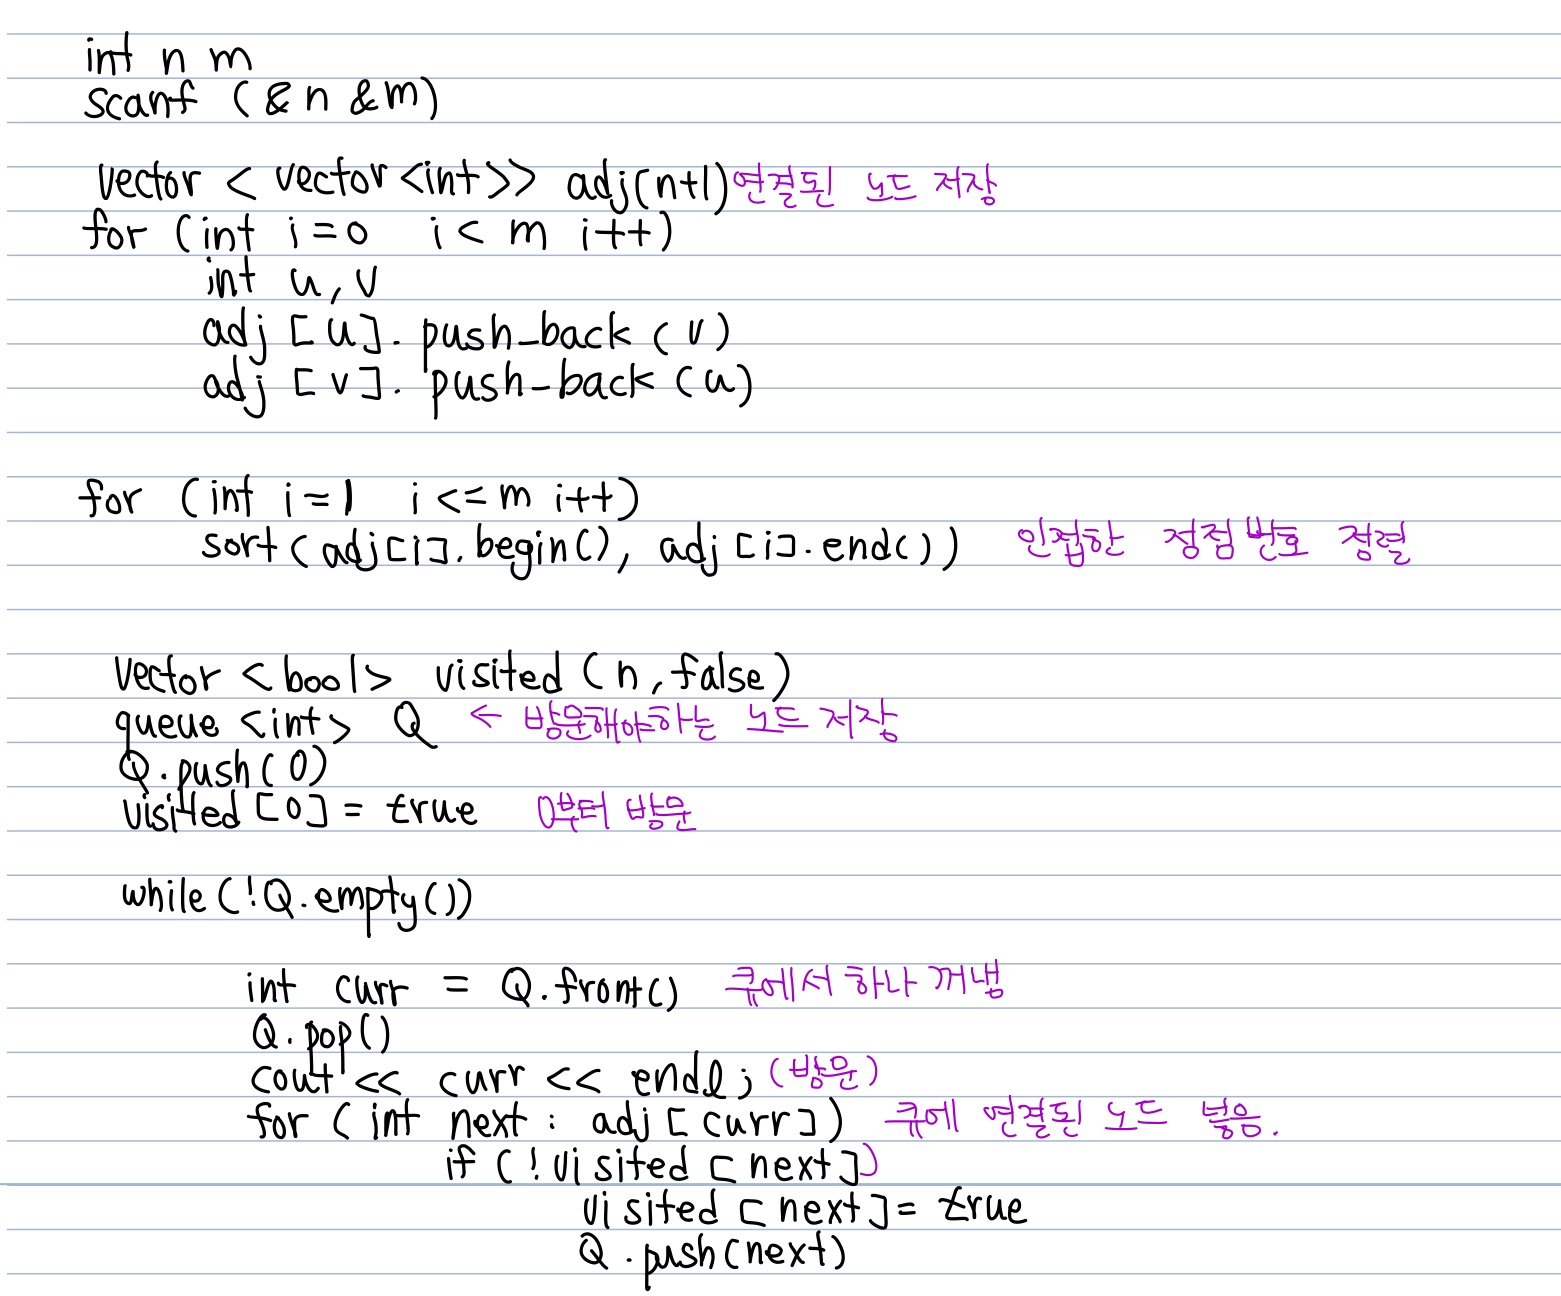 int n m
scanf (&n &m)
vector < vector<int>> adj(n+1) 연결된 노드 저장
for (int i=0 i< m i++)
int u, v
adj [u]. push-back (v)
adj [v]. push-back (u)
for (int i=1 i<=m i++)
sort(adj[i].begin(), adj[i].end()) 인접한 정점 번호 정렬
vector <bool> visited (n, false)
queue <int> Q ← 방문해야하는 노드 저장
Q.push(0)
visited [0] = true 0부터 방문
while (!Q.empty())
int curr = Q.front() 큐에서 하나 꺼냄
Q.pop()
cout << curr << endl; (방문)
for (int next : adj[curr]) 큐에 연결된 노드 넣음.
if (!visited [next])
visited [next]= true
Q.push(next)